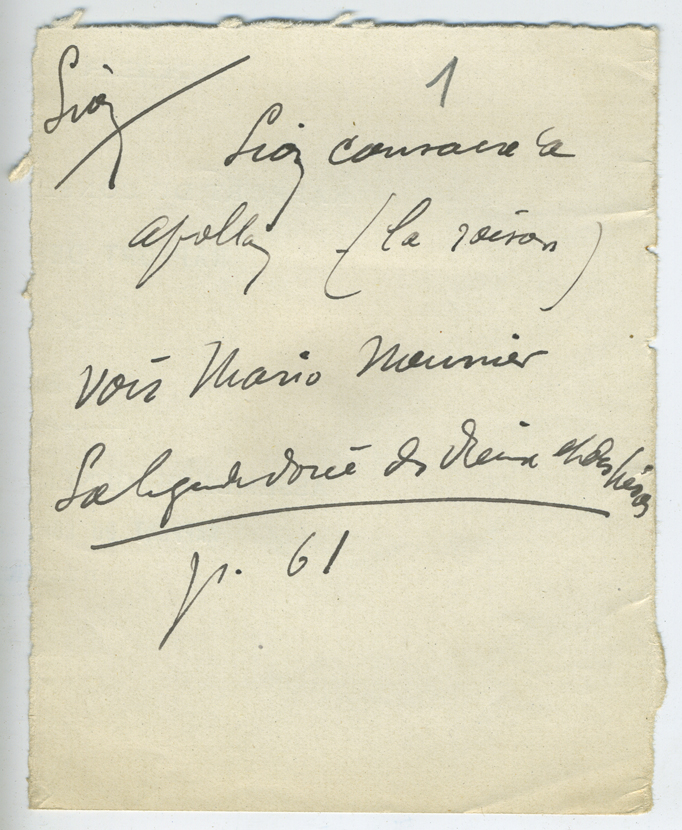 Lion
1
Lion consacré à
apollon (la raison)
Voir Mario Meunier
La légende dorée des dieux et des héros
p. 61